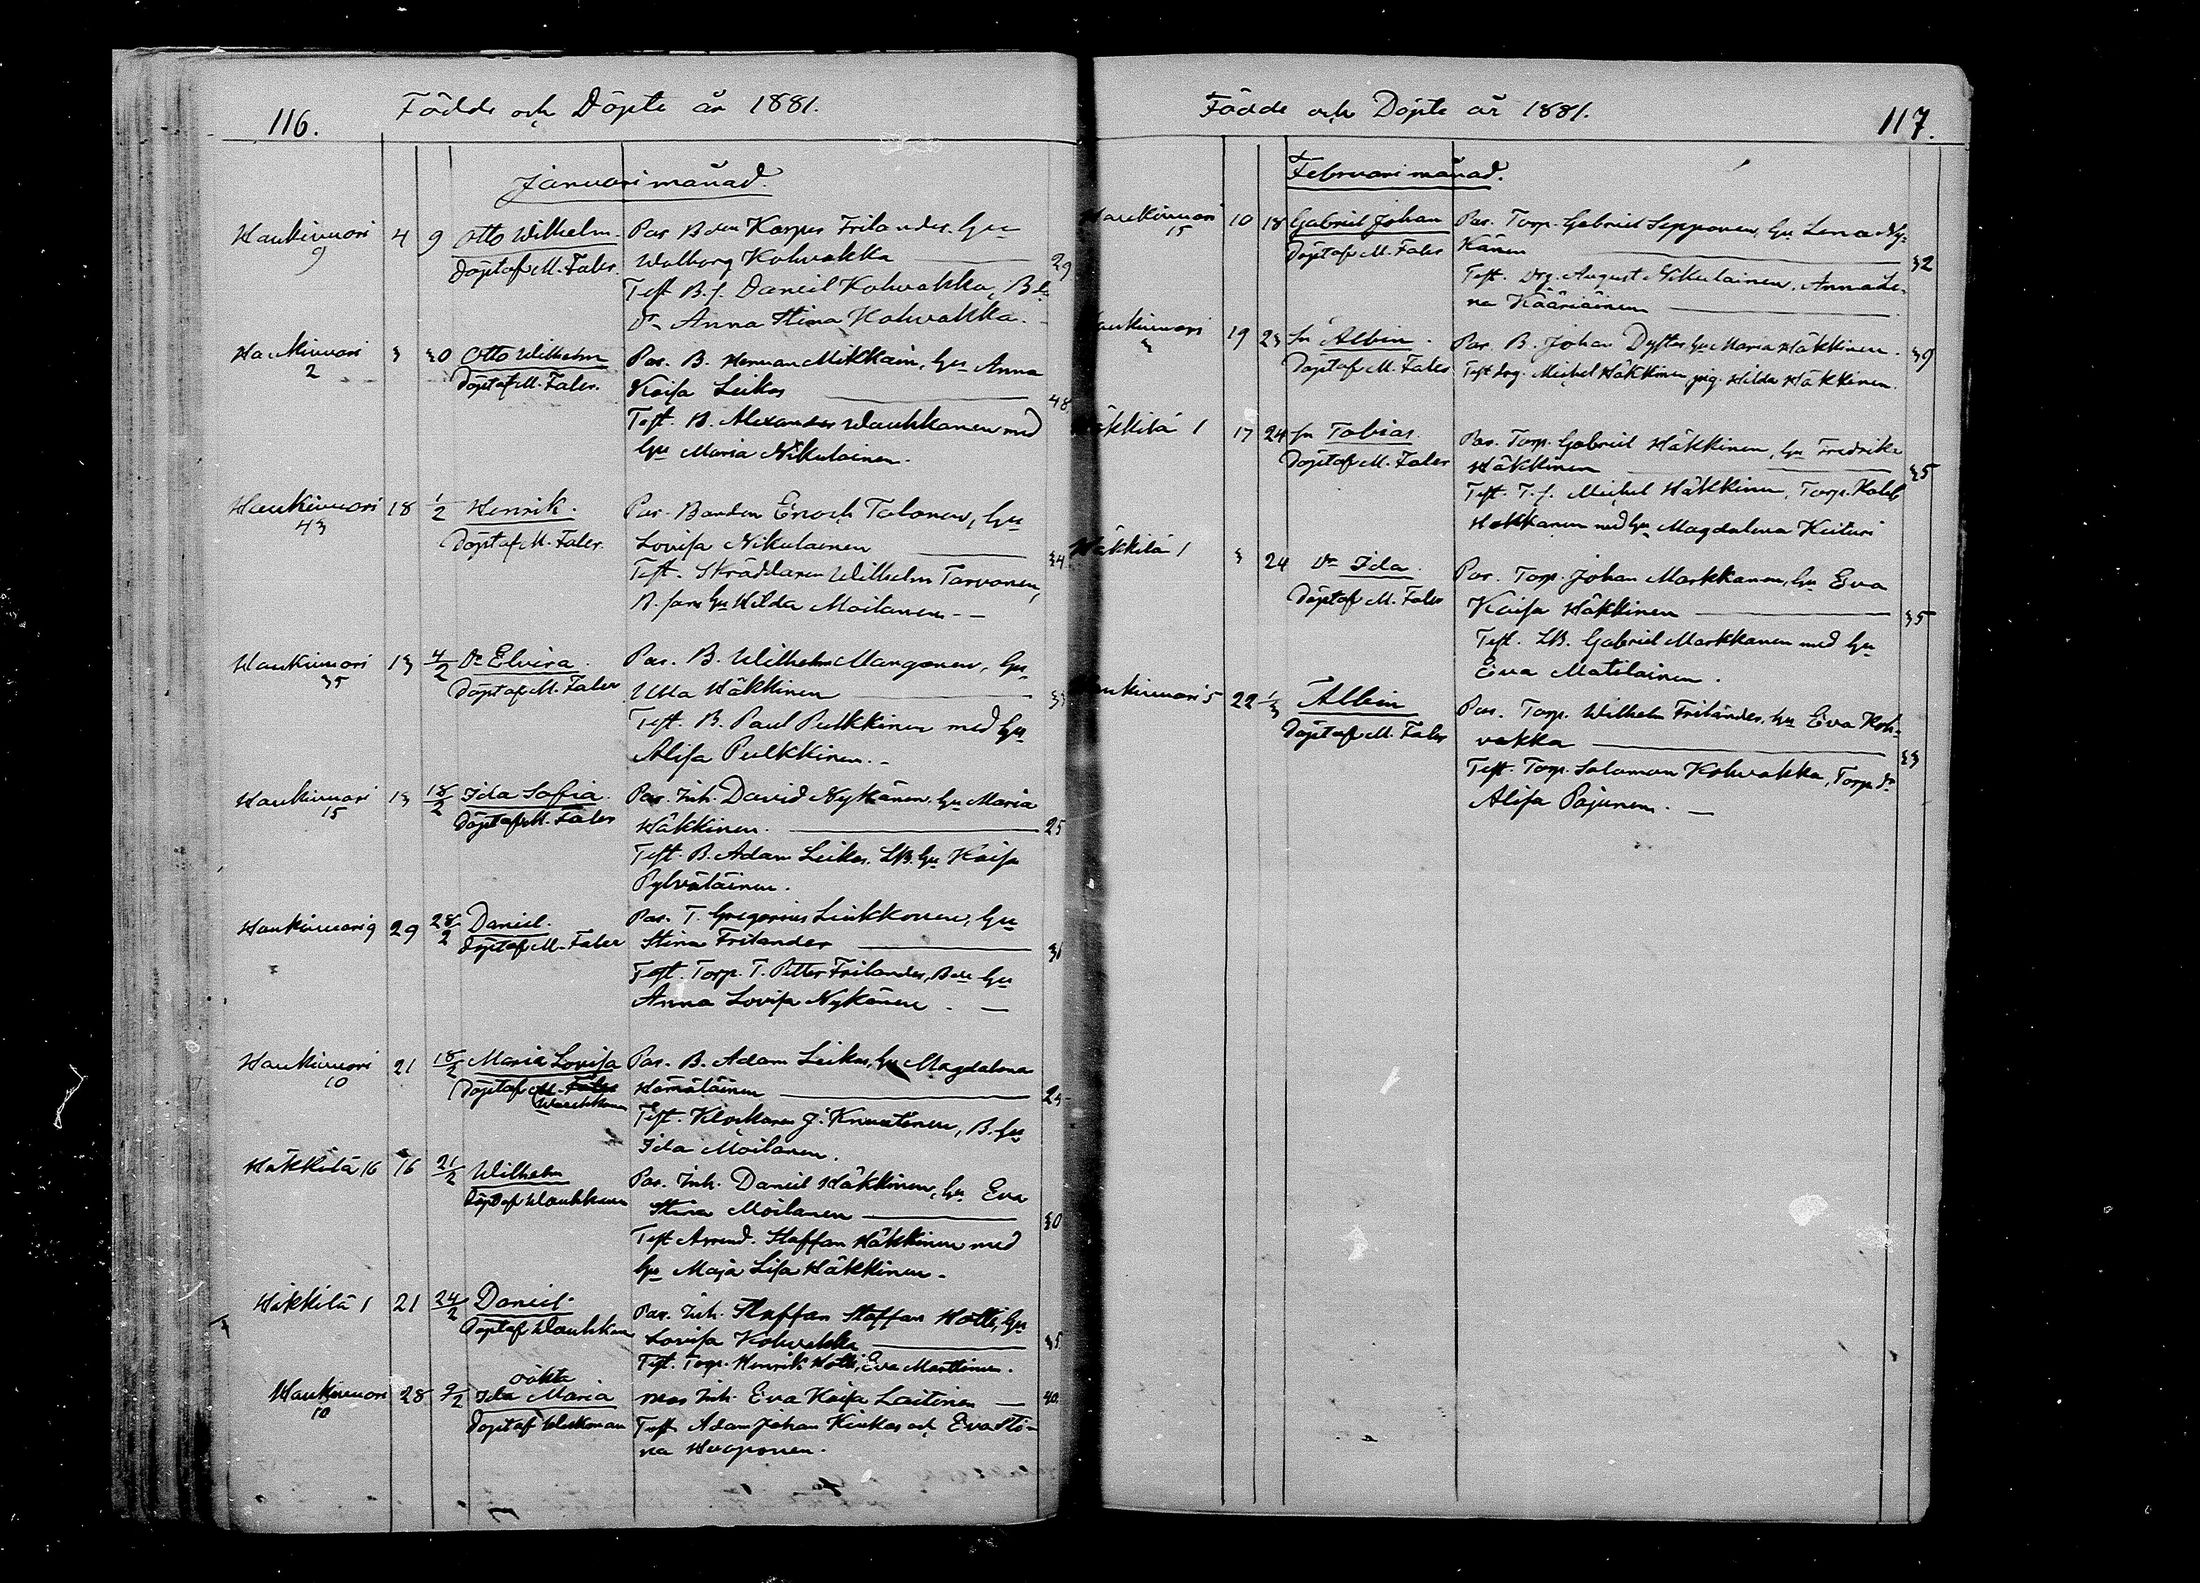 116.
Födde och Döpte år 1881.
Januari månad.
Haukivuori 9 4 9 Otto Wilhelm. Par. Bden Karpus Frilander, hu
Döpt af M. Faler. Walborg Kohvakka — 29
Test. B. s. Daniel Kohvakka, Bde
Dr Anna Stina Kohvakka.
Haukivuori 2 3 30 Otto Wilhelm Par. B. Herman Mikkain, hu Anna
Döpt af M. Faler. Kaisa Leikas — 48
Test. B. Alexander Laukkanen med
hu Maria Nikulainen.
Haukivuori 43 18 1/2 Henrik. Par. Bonden Enoch Talonen, hu
Döpt af M. Faler. Lovisa Nikulainen — 34
Test. Skräddaren Wilhelm Tarvonen,
B. hu Hilda Moilanen —
Haukivuori 35 13 4/2 Dr Elvira. Par. B. Wilhelm Manganen, hu
Döpt af M. Faler Ulla Häkkinen — 33
Test. B. Paul Pulkkinen med hu
Alisa Pulkkinen. -
Haukivuori 15 13 18/2 Ida Sofia. Par. Inh. David Nykänen, hu Maria
Döpt af M. Faler Häkkinen. — 25
Test. B. Adam Leikas, LB. hu Kaisa
Pylväläinen.
Haukivuori 9 29 28/2 Daniel. Par. T. Gregorius Liukkonen, hu
Döpt af M. Faler Stina Frilander — 31
Test. Torp. T. Petter Frilander, Bde hu
Anna Lovisa Nykänen. —
Haukivuori 10 21 18/2 Maria Lovisa Par. B. Adam Leikas, hu Magdalena
Döpt af M. Faler Hämäläinen — 25
Test. Klockaren J. Knuutinen, B. hu
Ida Moilanen.
Häkkilä 16 16 21/2 Wilhelm Par. Inh. Daniel Häkkinen, hu Eva
Döpt af Laukkanen Stina Moilanen — 30
Test. Arrend. Staffan Häkkinen med
hu Maja Lisa Häkkinen -
Häkkilä 1 21 24/2 Daniel. Par. Inh. Staffan Staffan Hotti, hu
Döpt af Laukkanen Lovisa Kohvakka — 35
Test. Torp. Henrik Hotti, Eva Marttinen.
oäkta
Haukivuori 10 28 9/2 Ida Maria mor Inh. Eva Kaisa Laitinen — 40
Döpt af Test. Adam Johan Kiukas och Eva Sti-
na Huoponen.
Födde och Döpte år 1881.
117.
Februari månad.
Haukivuori 15 10 18 Gabriel Johan Par. Torp. Gabriel Sepponen, hu Lena Ny-
Döpt af M. Faler känen — 32
Test. Drg. August Nikulainen, Anna Le-
na Kääriäinen —
Haukivuori 3 19 23 sn Albin. Par. B. Johan Dyster hu Maria Häkkinen. 39
Döpt af M. Faler Test. drg. Michel Häkkinen, pig. Hilda Häkkinen.
Häkkilä 1 17 24 sn Tobias. Par. Torp. Gabriel Häkkinen, hu Fredrika
Döpt af M. Faler Häkkinen — 35
Test. T. s. Michel Häkkinen, Torp. Kalle
Hokkanen med hu Magdalena Kuituri
Häkkilä 1 3 24 Dr Ida. Par. Torp. Johan Markkanen, hu Eva
Döpt af M. Faler Kaisa Häkkinen — 35
Test. LB. Gabriel Markkanen med hu
Eva Matilainen.
Haukivuori 5 22 1/3 Albin Par. Torp. Wilhelm Frilander, hu Eva Koh-
Döpt af M. Faler vakka — 33
Test. Torp. Salomon Kohvakka, Torp. dr
Alisa Pajunen. —